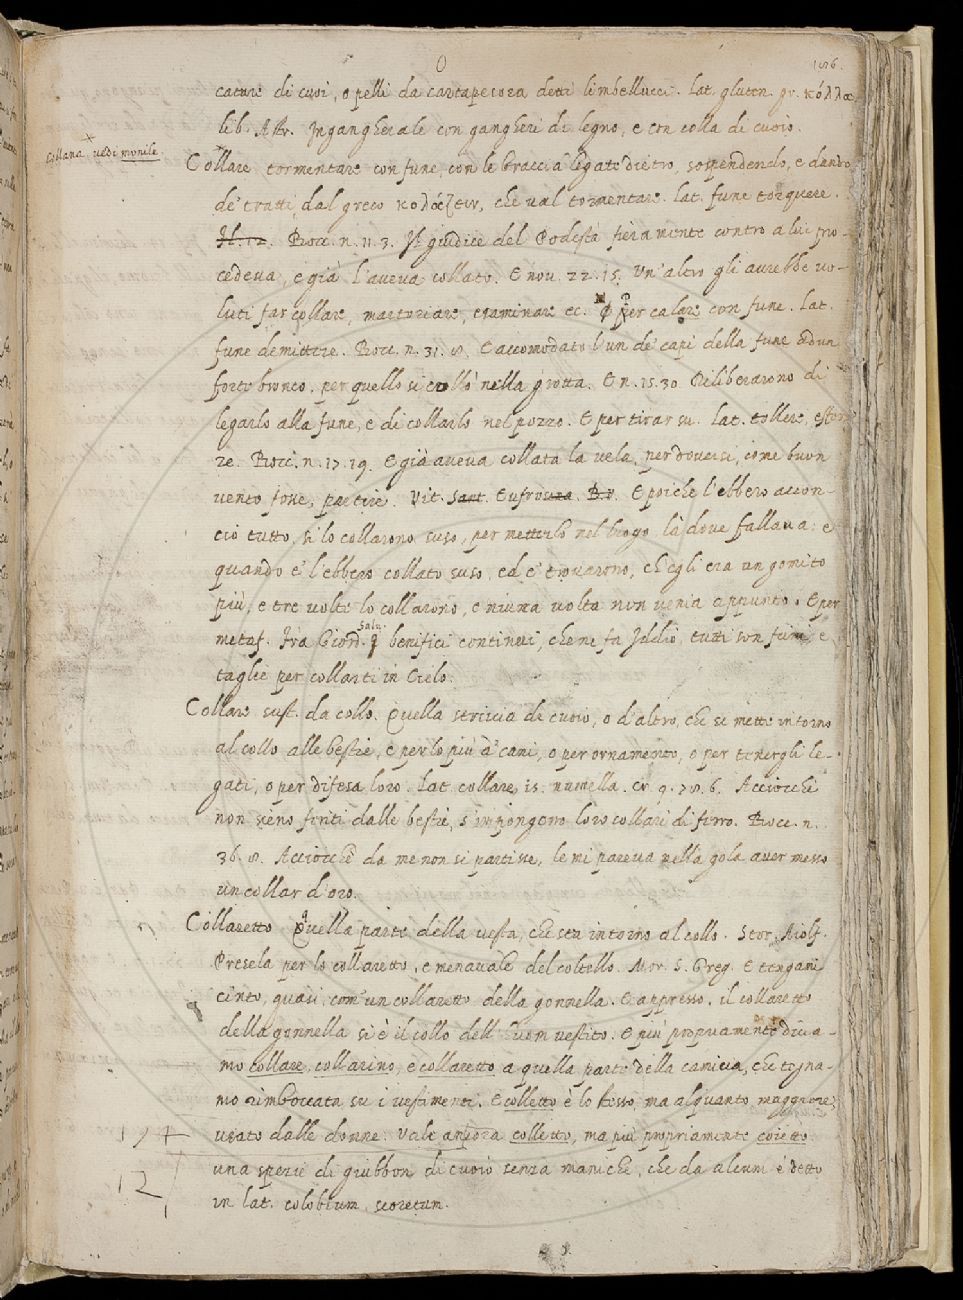 cature di cuoi, o pelli da cartapecora detti limbellucci. Lat. gluten. gr. κόλλα
lib. Astr. Ingangherale con gangheri di legno, e con colla di cuoio.
Collana. vedi monile.
Collare tormentare con fune, con le braccia legate dietro, sospendendo, e dando
de' tratti, dal greco κολάζειν, che val tormentare. Lat. fune torquere.
Bocc. n. 11. 3. Il giudice del Podestà fieramente contro a lui pro-
cedeva, e già l'aveva collato. E nov. 22. 15. Un' altro gli avrebbe vo-
luti far collare, martoriare, esaminare ec. per calare con fune. Lat.
fune demittere. Bocc. n. 31. 8. E accomodato l'un de' capi della fune ad un
forte bronco, per quello si collò nella grotta. E n. 15. 30 Diliberarono di
legarlo alla fune, e di collarlo nel pozzo. E per tirar su. Lat. tollere, effer
re. Bocc. n. 17. 19. E già aveva collata la vela, per doversi, come buon
vento fosse, partire. Vit. Sant. Eufrouza. B.V. E poiche l'ebbero accon-
cio tutto, si lo collarono suso, per metterlo nel luogo là dove fallava: e
quando e' l'ebbero collato suso, ed e' trovarono, ch'egli era un gomito
più, e tre volte lo collarono, e niuna volta non venia appunto. E per
metaf. Fra Giord. Salv. benifici continovi, che ne fa Iddio, tutti son funi, e
taglie per collarti in Cielo.
Collare sust. da collo. Quella striscia di cuoio, o d'altro, che si mette intorno
al collo alle bestie, e per lo più a' cani, o per ornamento, o per tenergli le-
gati, o per difesa loro. Lat. collare, is. numella. Cr. 9. 78. 6. Acciocchè
non sieno feriti dalle bestie, s'impongono loro collari di ferro. Bocc. n.
36. 8. Acciocchè da me non si partisse, le mi pareva nella gola aver messo
un collar d'oro.
Collaretto Quella parte della vesta, che sta intorno al collo. Stor. Aiolf.
Presela per lo collaretto, e menavale del coltello. Mor. S. Greg. E tengami
cinto, quasi com' un collaretto della gonnella. E appresso. il collaretto
della gonnella si è il collo dell' uom vestito. E più propriamente dicia-
mo collare, collarino, e collaretto a quella parte della camicia, che tegna-
mo rimboccata su i vestimenti. E colletto è lo stesso, ma alquanto maggiore,
usato dalle donne. Vale ancora colletto, ma più propriamente coietto
una spezie di giubbon di cuoio senza maniche, che da alcuni è detto
in lat. colobium, scortetum.